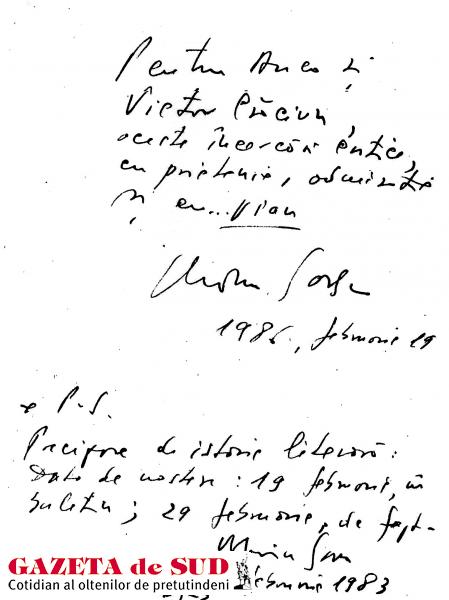 Pentru Anca și
Victor Crăciun,
aceste încercări critice,
cu prietenie, admirație
și cu... Vian
1986, februarie 19
* P.S.
Precizare de istorie literară:
Date de naștere: 19 februarie, în
buletin; 29 februarie, de fapt.
februarie 1983
GAZETA de SUD
Cotidian al oltenilor de pretutindeni